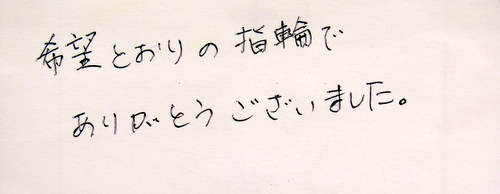 希望とおりの指輪で
ありがとうございました。